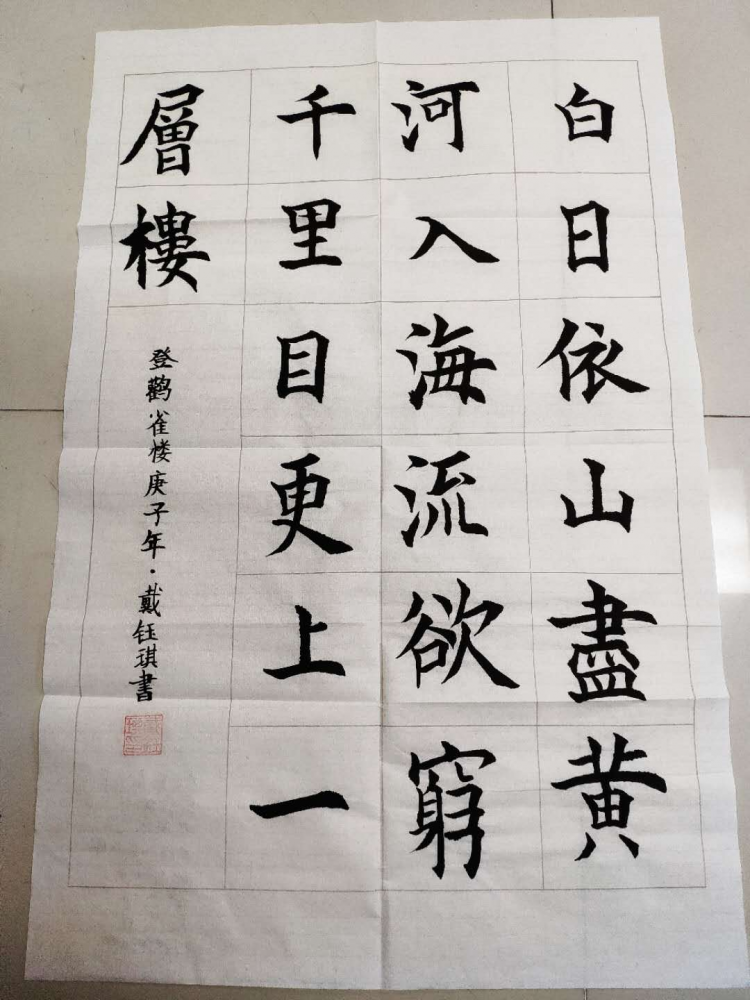 白日依山盡黄
河入海流欲窮
千里目更上一
層樓
登鹳雀楼庚子年·戴钰琪書